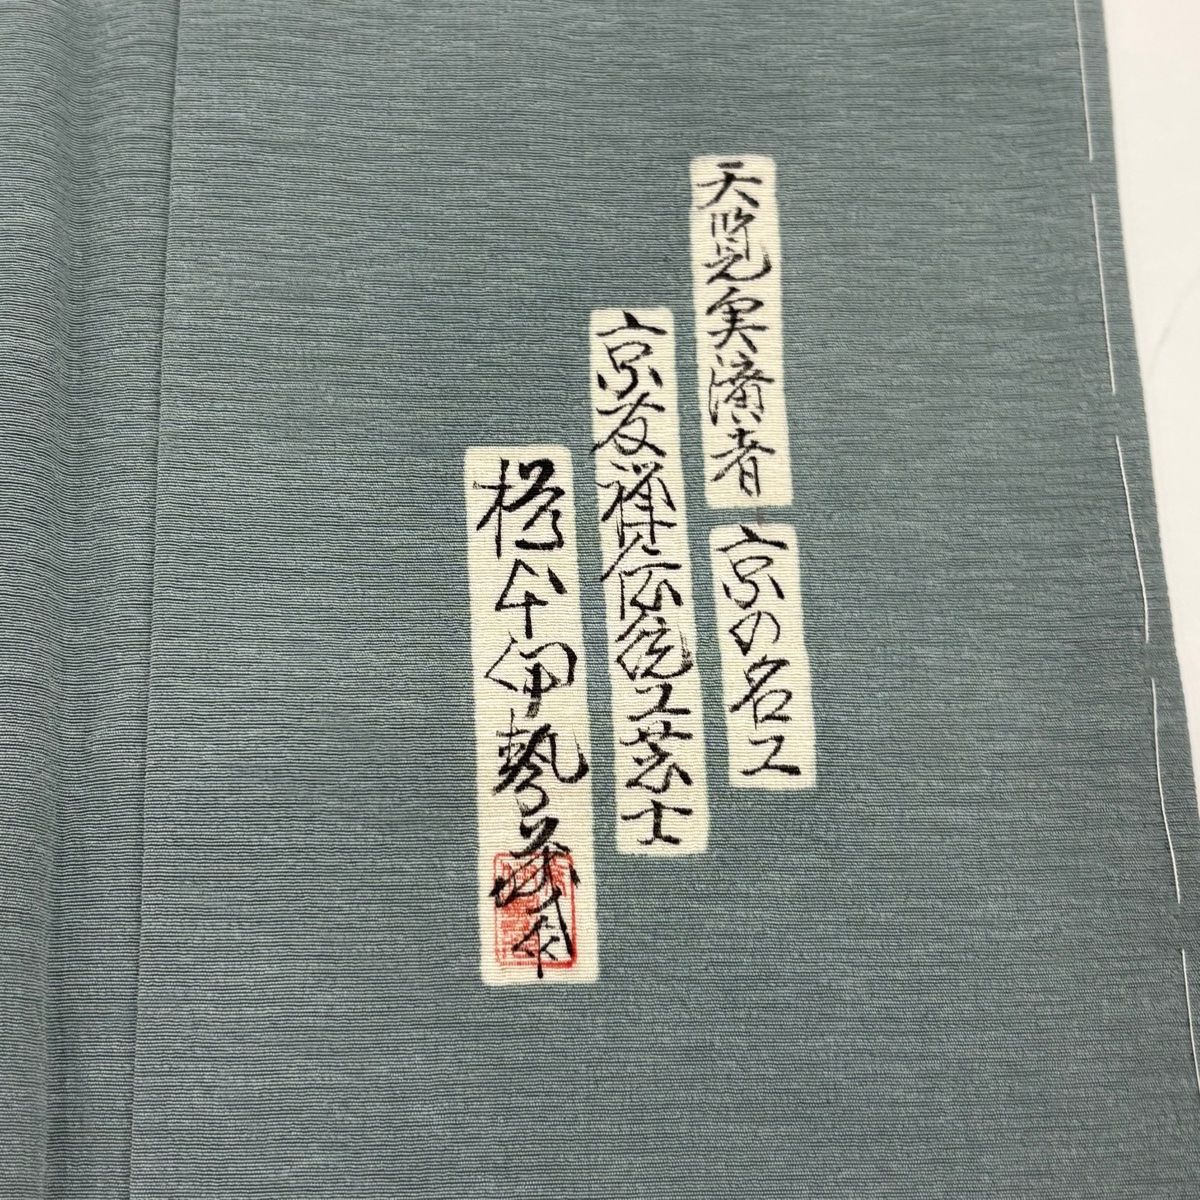 天覧実演者 京の名工
京友禅伝統工芸士
橋本伊勢